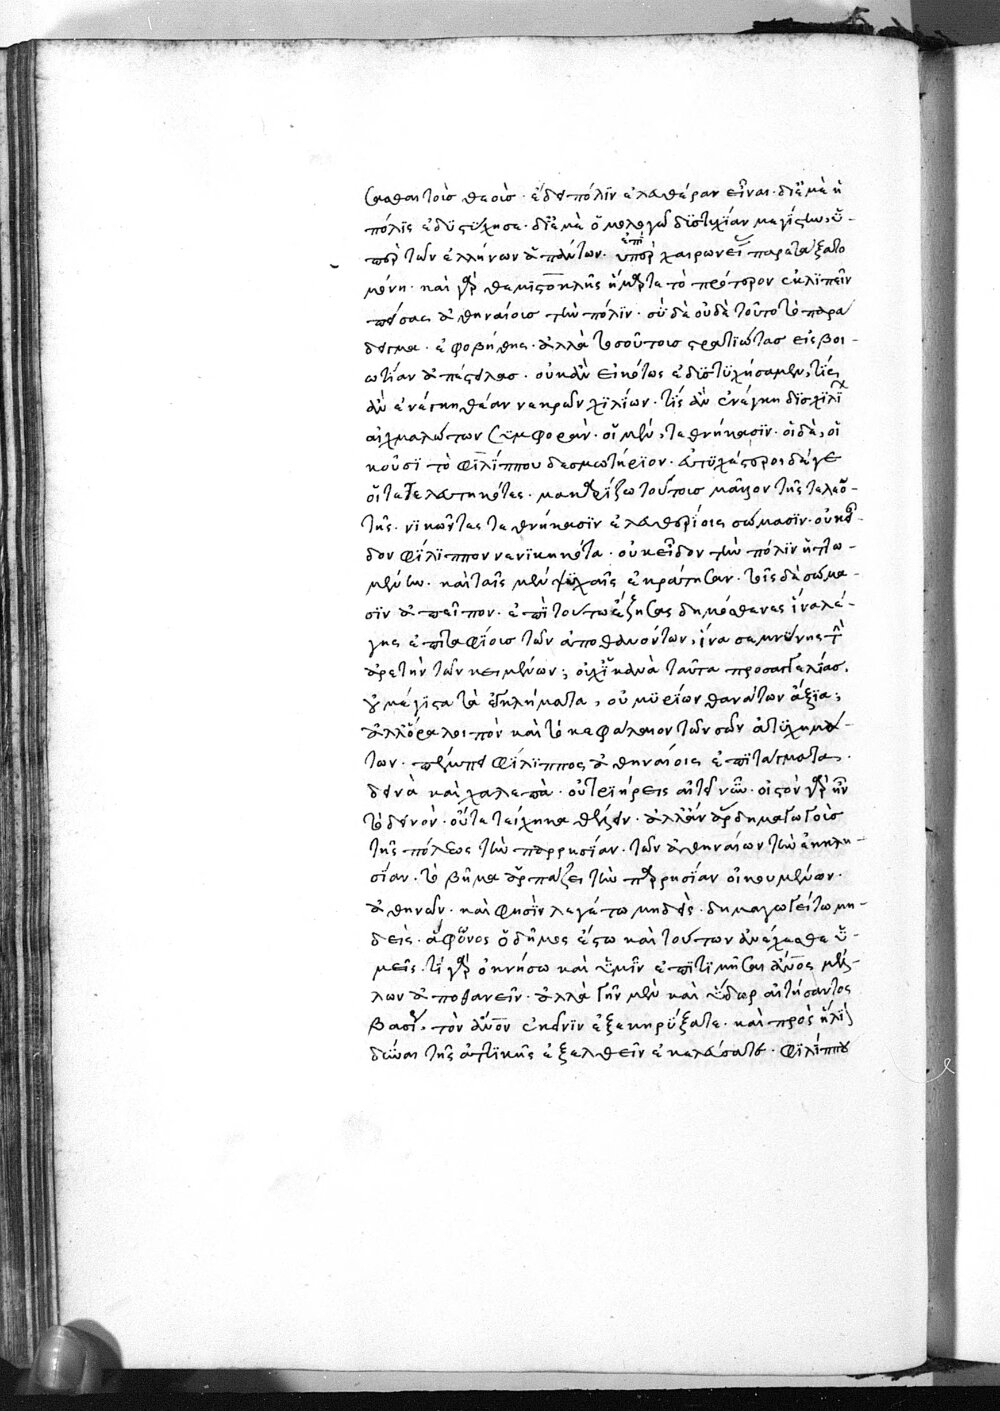 σασθαι τοῖσ θεοῖσ · ἔδει πόλϊν ἐλευθέραν εἶναι · δι' ἐμὲ ἡ
πόλϊς ἐδυστύχησε · δι' ἐμὲ ὁμολογῶ δϊστυχίαν μεγίστην, ὑ-
πὲρ τῶν ἑλλήνων ἁπάντων · ὑπὲρ χαιρωνεί παρετάξατο
μόνη · καὶ γὰρ θεμιστοκλῆς ἡμᾶς τὸ πρότερον ἐκλϊπεῖν
πείσας ἀθηναίοισ τὴν πόλϊν · σὺ δὲ οὐδὲ τοῦτο τὸ παρά
δειγμα · ἐφοβήθης · ἀλλὰ τοσούτοισ στρατϊώτασ εἰς βοι-
ωτίαν ἀπέστειλασ · οὐκ ἂν εἰκότως ἐδϊστυχήσαμεν, τίς
ἂν ἐνέγκῃ θέαν νεκρῶν χϊλίων · τίς ἂν ἐνέγκῃ δϊσχϊλί
αἰχμαλώτων συμφοράν · οἱ μὲν, τεθνήκασϊν · οἱ δὲ, οἰ
κοῦσϊ τὸ φϊλίππου δεσμωτήρϊον · εὐτυχέστεροι δέ γε
οἵ τε τετελευτηκότες · μακαρίζω τούτοισ μᾶλλον τῆς τελευ-
τῆς · νϊκῶντες τεθνήκασϊν ἐλευθερίοις σώμασϊν · οὐκ εἶ-
δον φίλϊππον νενϊκηκότα · οὐκ εἶδον τὴν πόλϊν ἡττω-
μένην · καὶ ταῖς μὲν ψυχαῖς ἐκράτησαν · τοῖς δὲ σώμα-
σϊν ἀπεῖπον · ἐπὶ τούτω ἔζησας δημόσθενες ἵνα λέ-
γης ἐπϊταφίοισ τῶν ἀποθανόντων, ἵνα σεμνύνης τὴν
ἀρετὴν τῶν κειμένων ; οὐχ ἱκανὰ ταῦτα προσαγγελίασ.
οὐ μέγϊστα τὰ ἐγκλήματα, οὐ μϋρίων θανάτων ἄξια ;
ἀλλ' ὅρα λοιπὸν καὶ τὸ κεφάλαιον τῶν σῶν ἀτϋχημά-
των · πέμπει φίλϊππος ἀθηναίοις ἐπϊτάγματα.
δεινὰ καὶ χαλεπὰ · οὐ τρϊήρεις αἰτεῖ νῦν · οἷστὸν γὰρ ἦν
τὸ δεινὸν · οὔτε τείχη καθέξειν · ἀλλ' ἐὰν ἄρδη μεγ τοῖσ
τῆς πόλεως τὴν παρρησίαν · τῶν ἀθηναίων τὴν ἐκκλη-
σίαν · τὸ βῆμα ἁρπάζει τὴν παρρησίαν οἰκουμένων ·
ἀθηνῶν · καὶ φησϊν λεγέτω μηδεὶς · δημαγωγείτω μη-
δεὶς · ἄφωνος ὁ δῆμος ἔστω καὶ τούτων ἀνέχεσθε ὑ-
μεῖς · τί γὰρ ὀκνήσω καὶ ὑμῖν ἐπϊτϊμῆσαι ἄνους μέλ-
λων ἀποθανεῖν · ἀλλὰ γῆν μὲν καὶ ὕδωρ αἰτήσαντος
βασι · τὸν ἄνον ἐκεῖνϊν ἐξεκηρύξατε · καὶ πρὸς ἡλι
δίωσαι τῆς ἀττϊκῆς ἐξελθεῖν ἐκελεύσατε · φϊλίππου